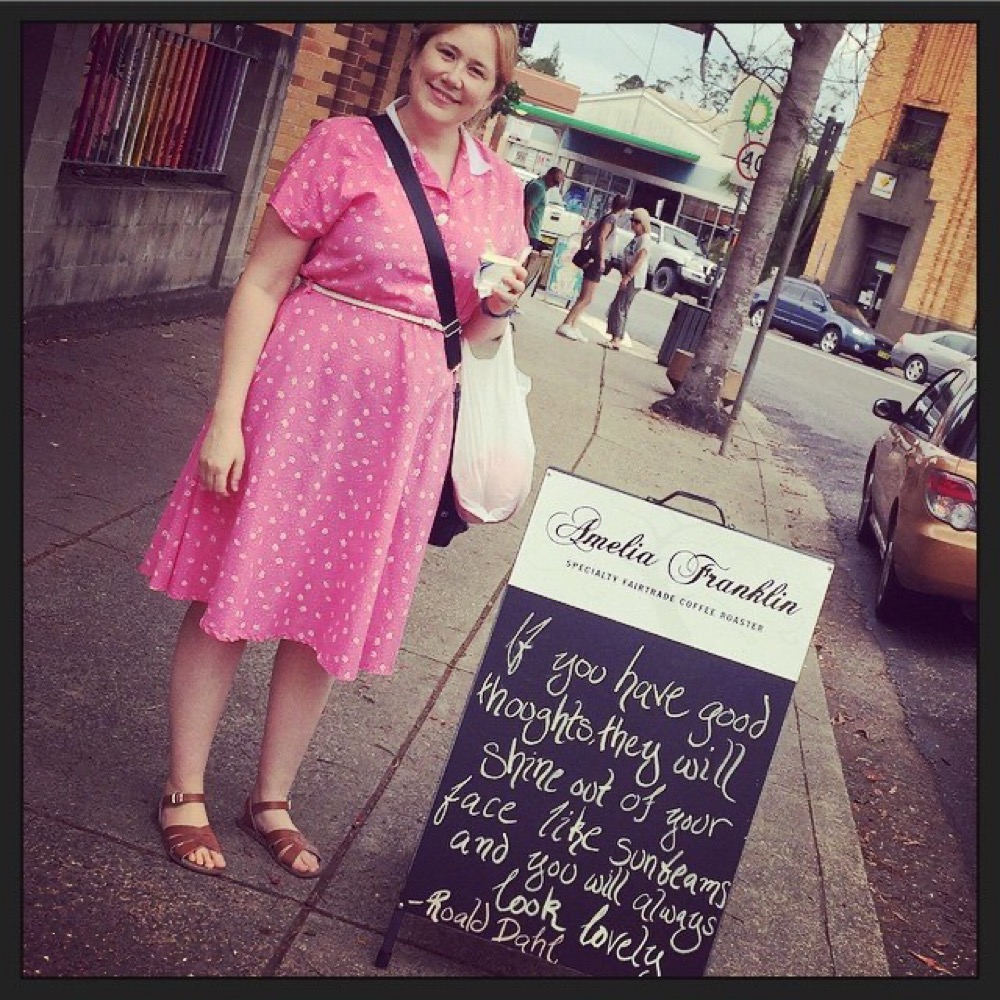 Amelia Franklin
SPECIALTY FAIRTRADE COFFEE ROASTER
If you have good
thoughts, they will
shine out of your
face like sunbeams
and you will always
look lovely
.-Roald Dahl
bp
40